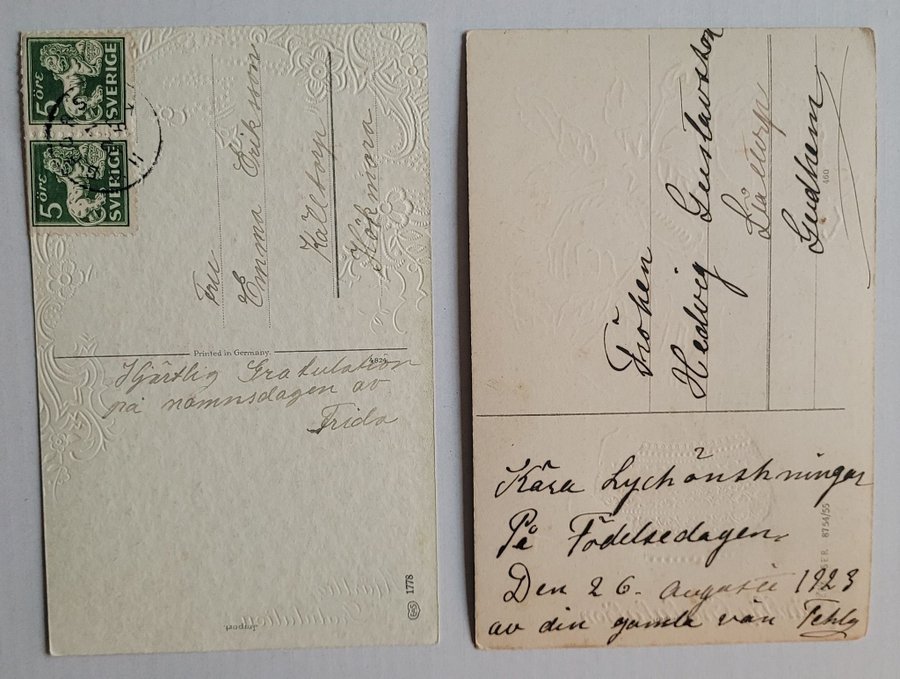 5 ÖRE
SVERIGE
5 ÖRE
SVERIGE
Fru
Emma Eriksson
Källtorp
Hökmora
Printed in Germany
4824
Hjärtlig Gratulation
på namnsdagen av
Frida
EAS 1778
Import
Fröken
Hedvig Gustavsson
Gudhem
460
Kära Lyckönskningar
På Födelsedagen
Den 26. Augusti 1923
av din gamla vän
8754/55